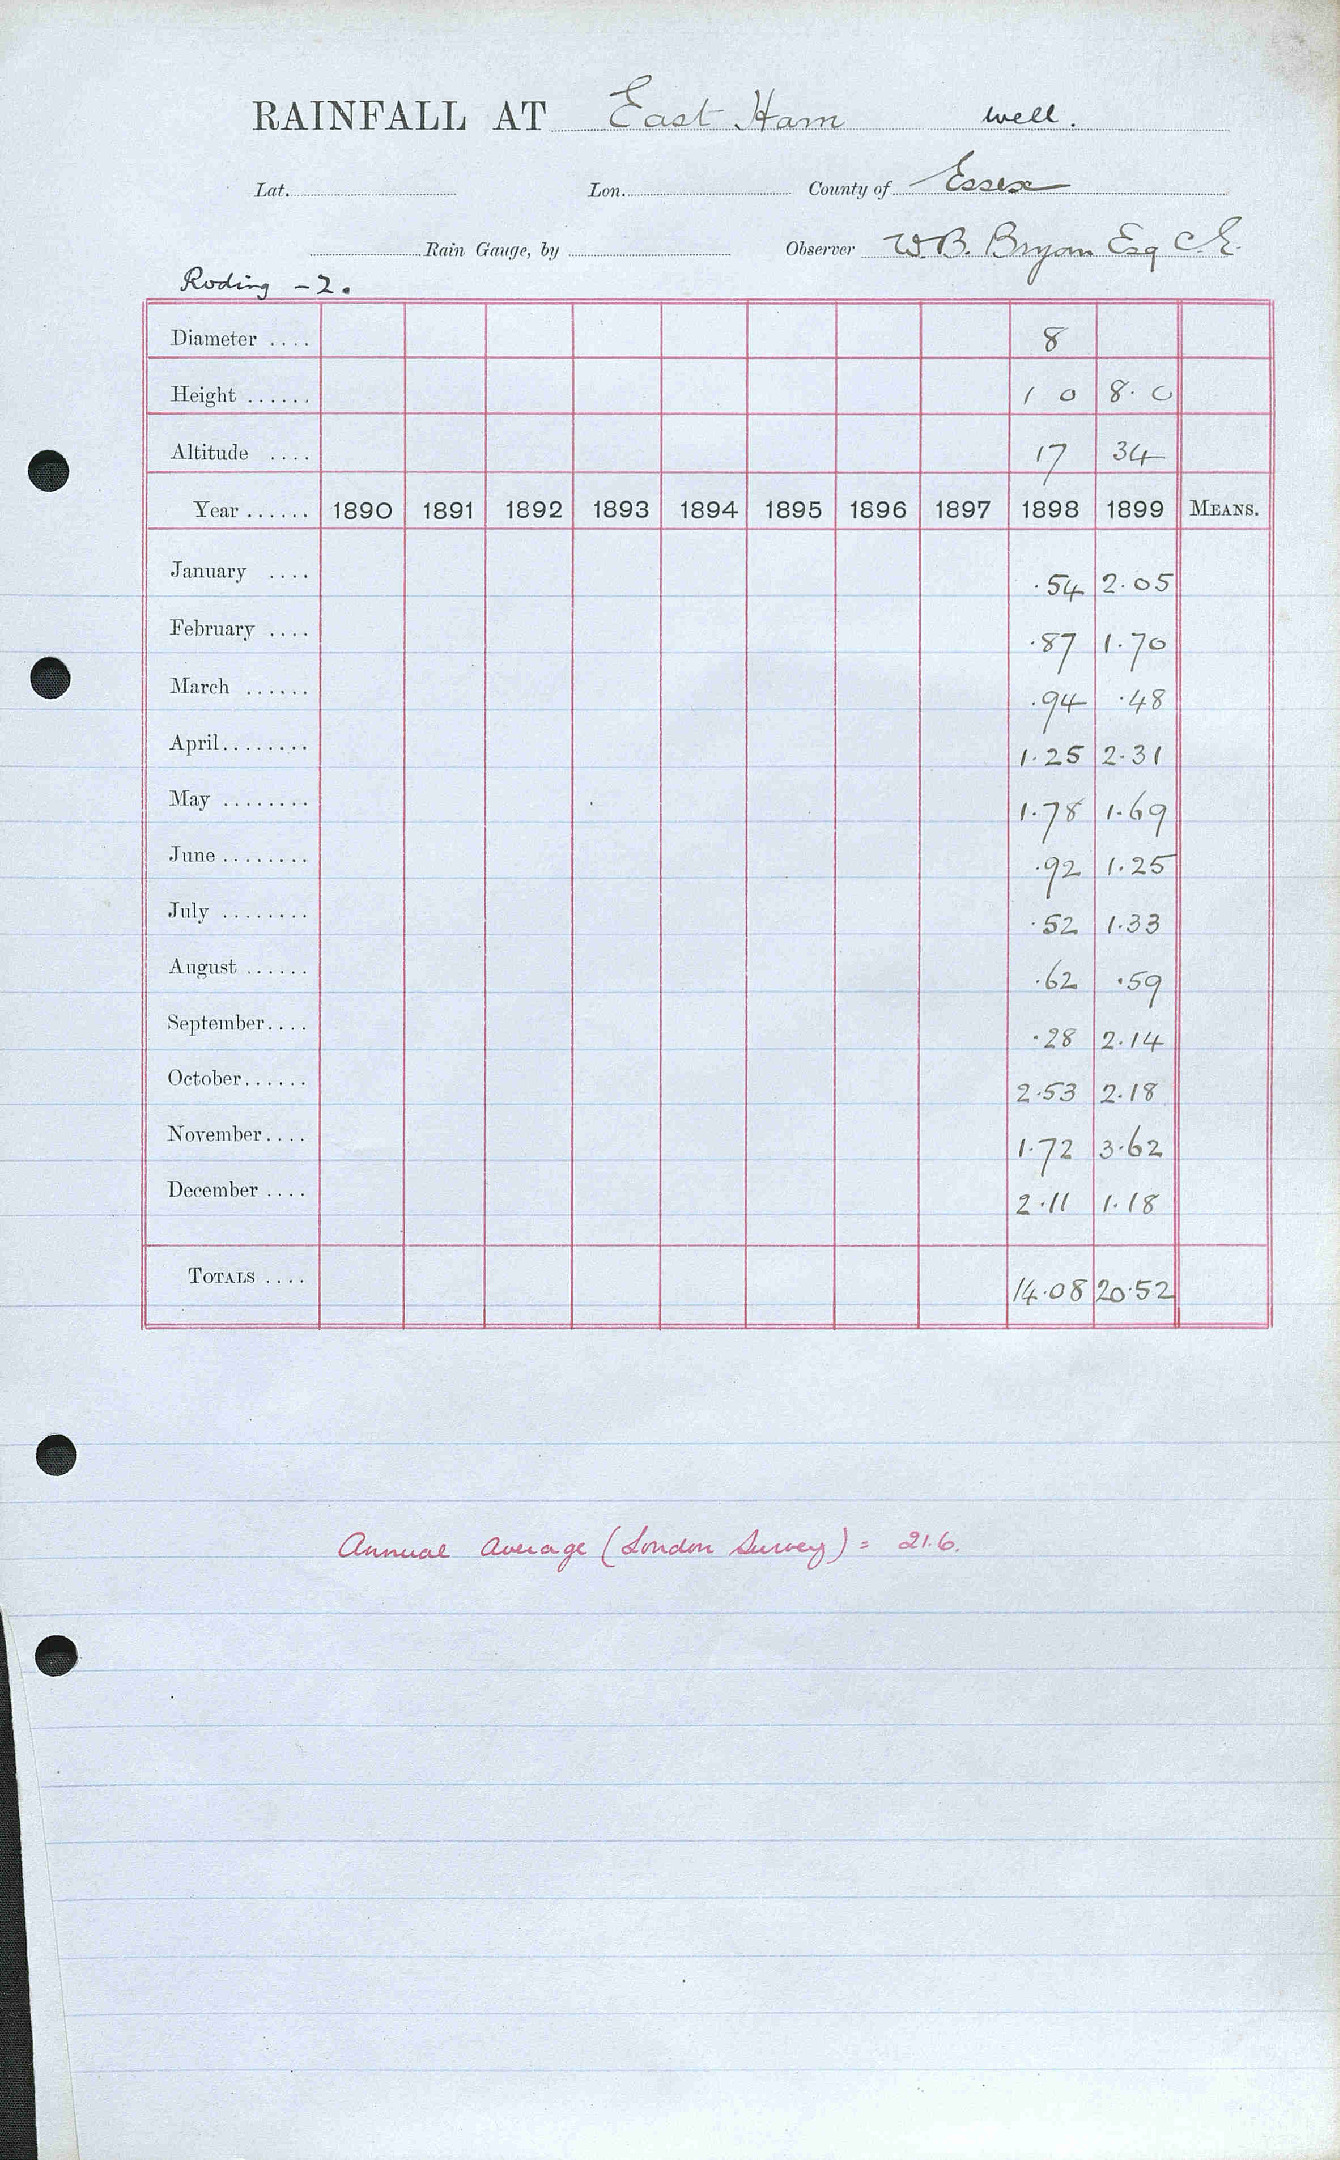 RAINFALL AT East Ham well.
Lat. Lon. County of Essex
Rain Gauge, by Observer W.B. Bryan Esq C.E.
Roding - 2.
Diameter .... 8
Height ...... 1 0 8. 0
Altitude .... 17 34
Year ...... 1890 1891 1892 1893 1894 1895 1896 1897 1898 1899 MEANS.
January .... .54 2.05
February .... .87 1.70
March ...... .94 .48
April........ 1.25 2.31
May ........ 1.78 1.69
June ........ .92 1.25
July ........ .52 1.33
August ...... .62 .59
September.... .28 2.14
October...... 2.53 2.18
November.... 1.72 3.62
December .... 2.11 1.18
TOTALS .... 14.08 20.52
Annual average (London Survey) = 21.6.